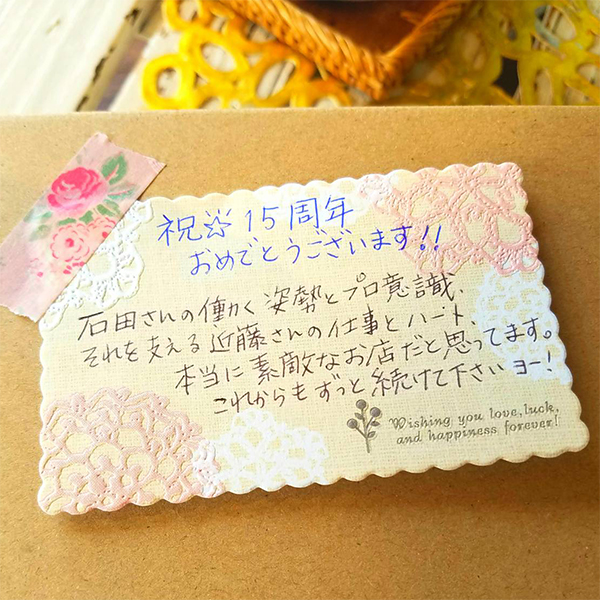 祝※15周年
おめでとうございます!!
石田さんの働く姿勢とプロ意識、
それを支える近藤さんの仕事とハート、
本当に素敵なお店だと思ってます。
これからもずっと続けて下さいヨー!
Wishing you love, luck,
and happiness forever!